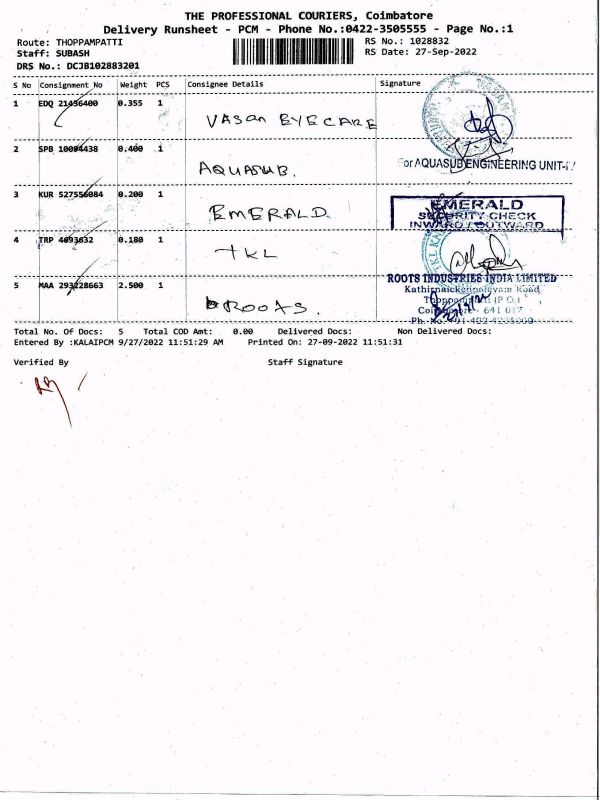 THE PROFESSIONAL COURIERS, Coimbatore
Delivery Runsheet - PCM - Phone No.:0422-3505555 - Page No.:1
Route: THOPPAMPATTI
Staff: SUBASH
DRS No.: DCJB102883201
RS No.: 1028832
RS Date: 27-Sep-2022
S No Consignment No Weight PCS Consignee Details Signature
1 EDQ 21456400 0.355 1 VASAN EYECARE
2 SPB 10094438 0.400 1 AQUASUB.
For AQUASUB ENGINEERING UNIT-
3 KUR 527556084 0.200 1 EMERALD
EMERALD
SECURITY CHECK
INWARD / OUTWARD
4 TRP 4693632 0.180 1 TKL
5 MAA 293228663 2.500 1 ROOTS.
ROOTS INDUSTRIES INDIA LIMITED
Kathirnaickenpalayam Road,
Thoppampatti (P.O.)
Coimbatore - 641 017
Total No. Of Docs: 5 Total COD Amt: 0.00 Delivered Docs: Non Delivered Docs:
Entered By :KALAIPCM 9/27/2022 11:51:29 AM Printed On: 27-09-2022 11:51:31
Verified By Staff Signature